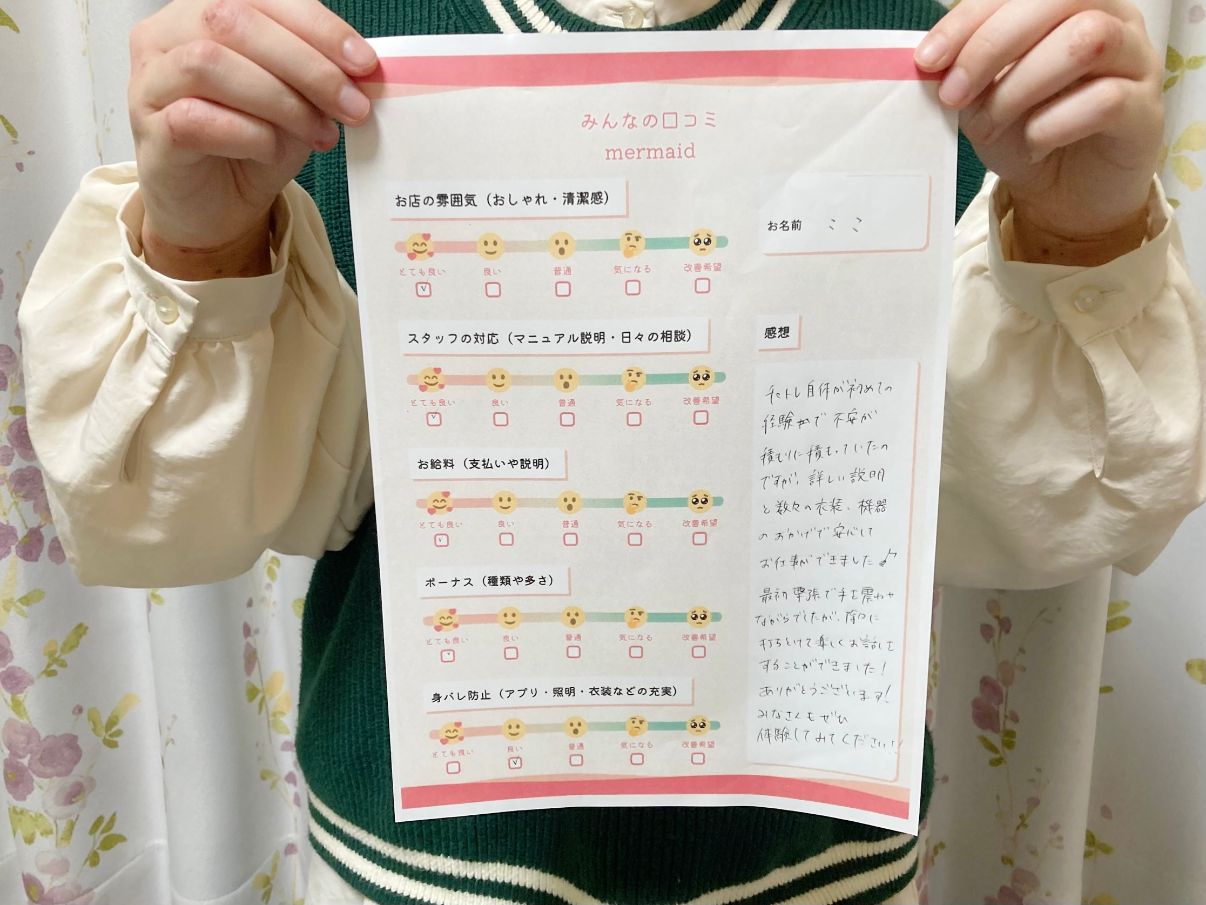 みんなの口コミ
mermaid
お店の雰囲気（おしゃれ・清潔感）
とても良い 良い 普通 気になる 改善希望
スタッフの対応（マニュアル説明・日々の相談）
とても良い 良い 普通 気になる 改善希望
お給料（支払いや説明）
とても良い 良い 普通 気になる 改善希望
ボーナス（種類や多さ）
とても良い 良い 普通 気になる 改善希望
身バレ防止（アプリ・照明・衣装などの充実）
とても良い 良い 普通 気になる 改善希望
お名前 ミミ
感想
チャトレ自体が初めての
経験で不安が
積もりに積もっていたの
ですが、詳しい説明
と数々の衣装、機器
のおかげで安心して
お仕事ができました♪
最初緊張で手を震わせ
ながらでしたが、徐々に
打ちとけて楽しくお話しを
することができました！
ありがとうございます！
みなさんもぜひ
体験してみてください！